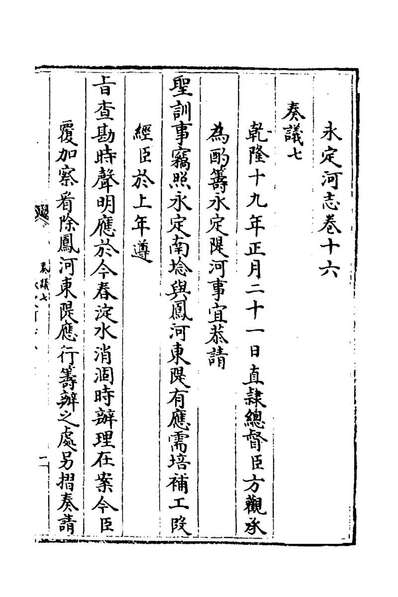 永定河志卷十六
奏議七
乾隆十九年正月二十一日直隸總督臣方觀承
為酌籌永定隄河事宜恭請
聖訓事竊照永定南埝與鳳河東隄有應需培補工段
經臣於上年遵
旨查勘時聲明應於今春淀水消涸時辦理在案今臣
覆加察看除鳳河東隄應行籌辦之處另摺奏請
奏議七